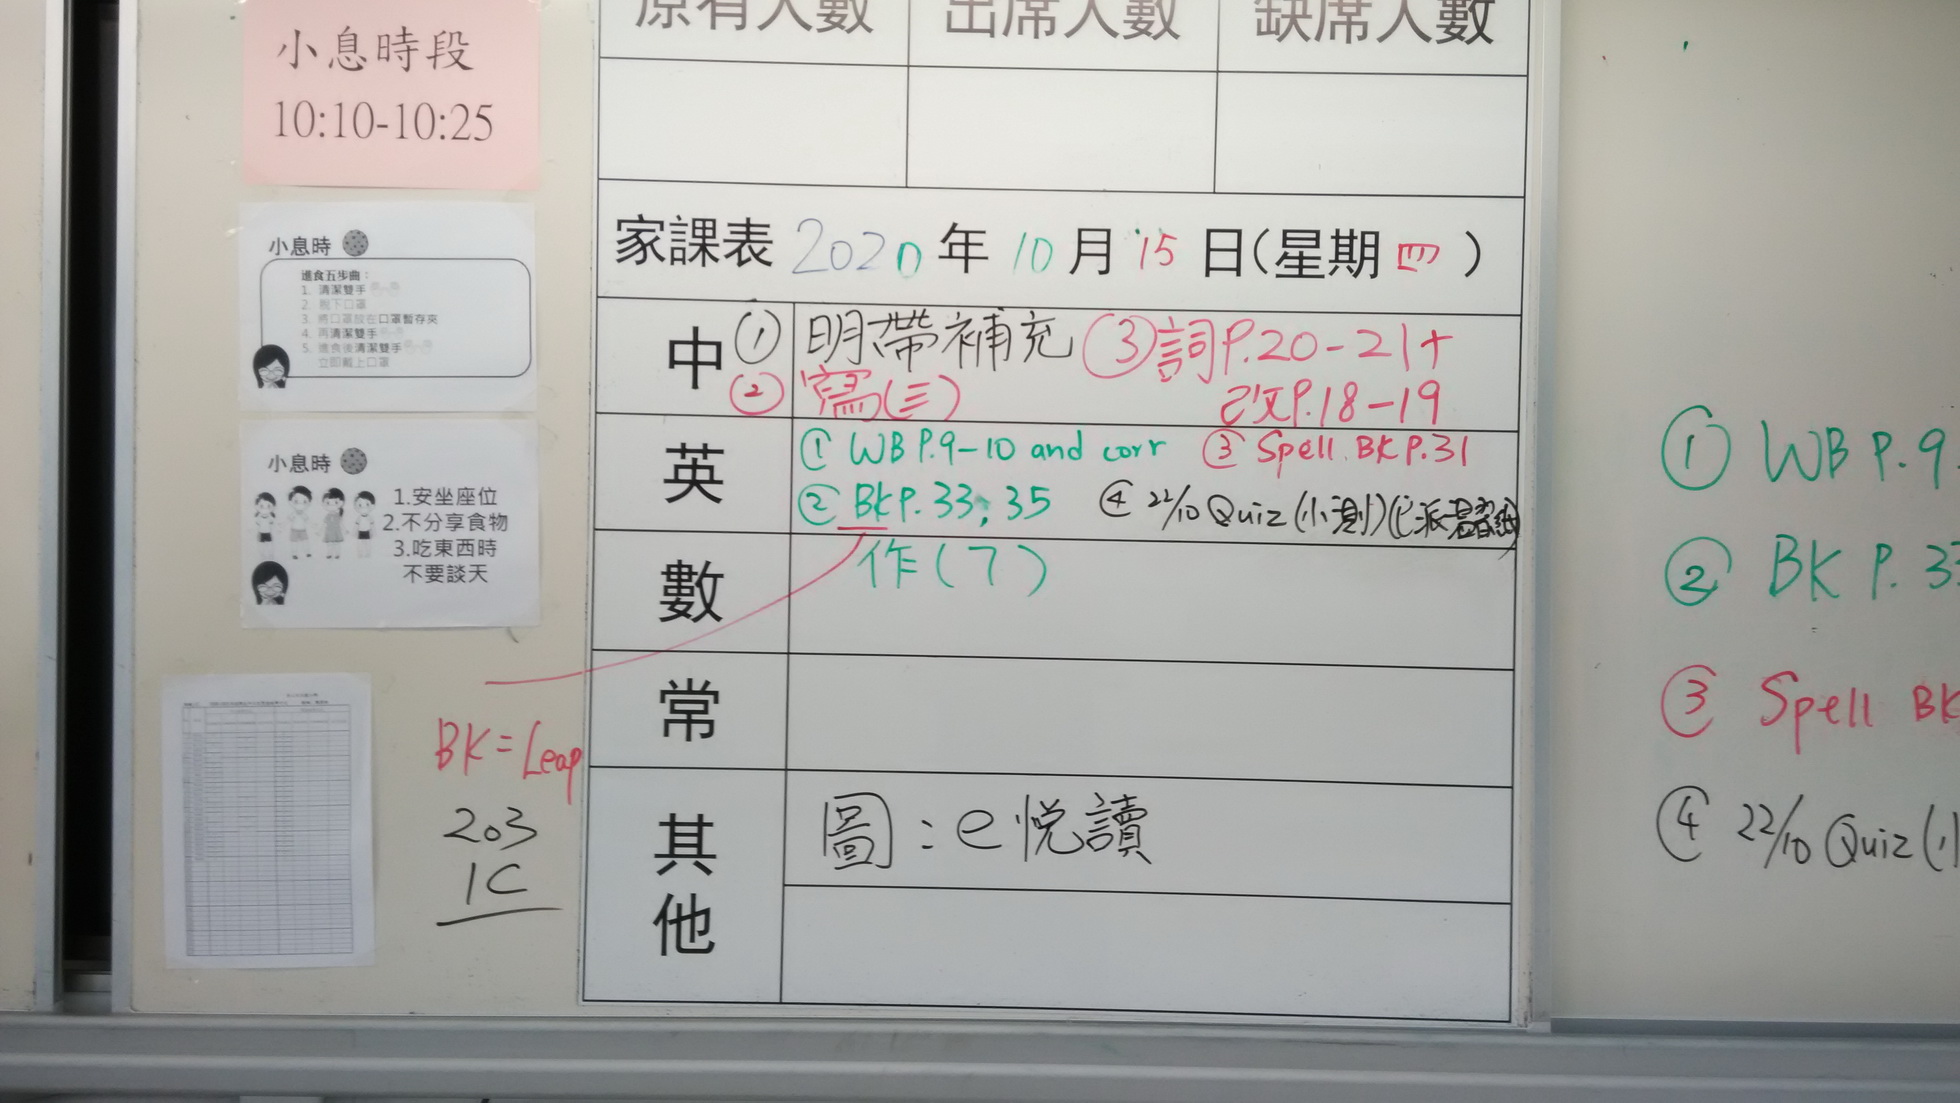 小息時段
10:10-10:25
小息時
進食五步曲：
1. 清潔雙手
2. 脫下口罩
3. 將口罩放在口罩暫存夾
4. 再清潔雙手
5. 進食後清潔雙手
立即戴上口罩
小息時
1.安坐座位
2.不分享食物
3.吃東西時
不要談天
BK=Leap
203
1C
原有人數 出席人數 缺席人數
家課表 2020 年 10 月 15 日(星期 四 )
中 ① 明帶補充 ③ 詞P.20-21+
② 寫(三) 改P.18-19
英 ① WB P.9-10 and corr ③ Spell. BK P.31
② BK P. 33, 35 ④ 22/10 Quiz (小測)(已派溫習紙)
數 作(7)
常
其他 圖：e悅讀
① WB P.9
② BK P. 33
③ Spell BK
④ 22/10 Quiz (小